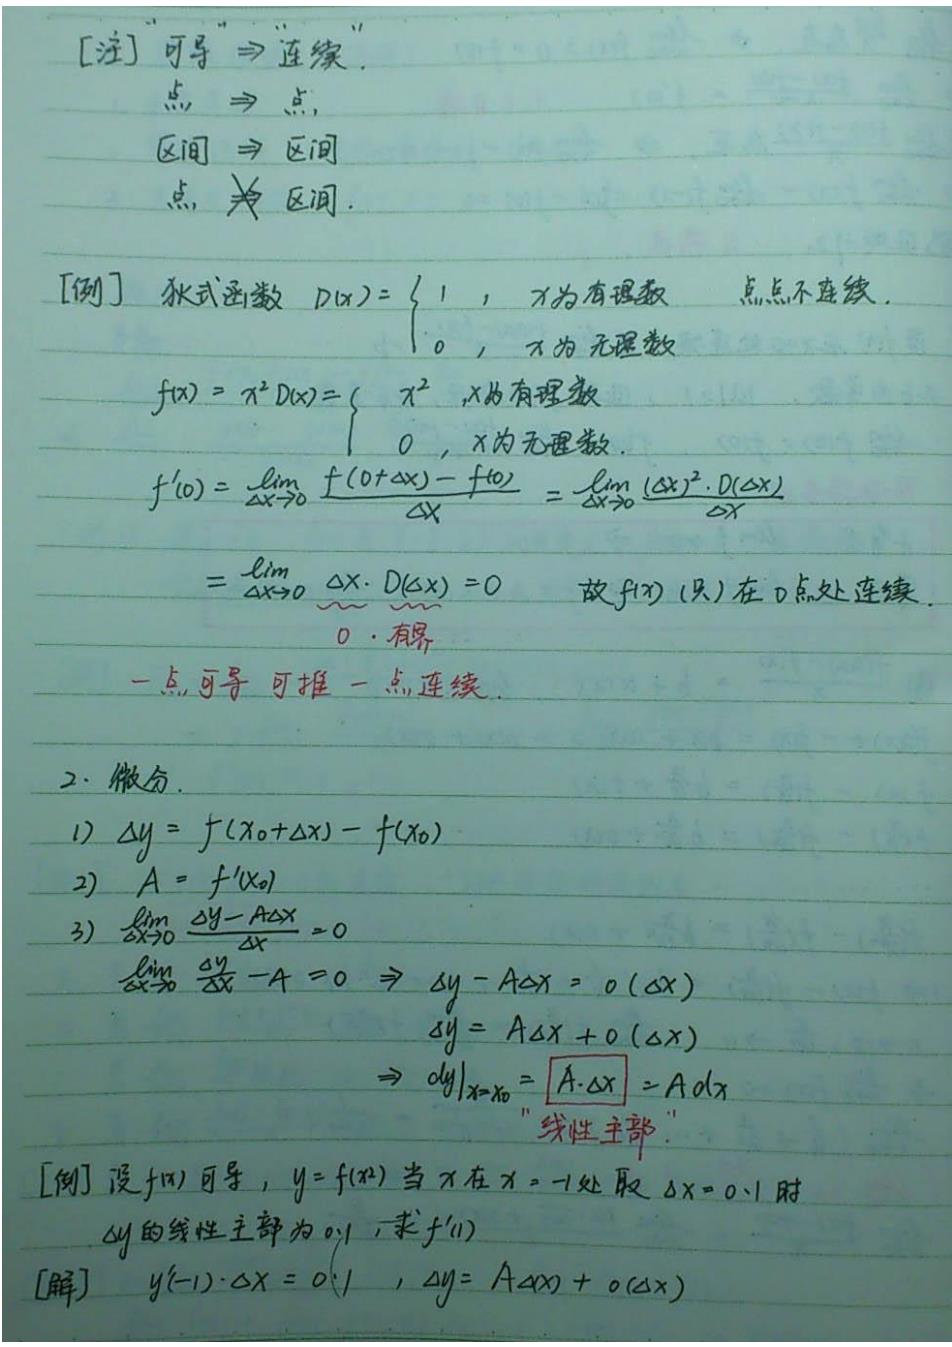 [注] "可导" ⇒ "连续".
点 ⇒ 点
区间 ⇒ 区间
点 ⇏ 区间.
[例] 狄式函数 D(x) = { 1 , x为有理数 点点不连续.
0 , x为无理数
f(x) = x² D(x) = { x² , x为有理数
0 , x为无理数.
f'(0) = lim Δx→0 (f(0+Δx) - f(0))/Δx = lim Δx→0 ((Δx)²·D(Δx))/Δx
= lim Δx→0 Δx·D(Δx) = 0 故f(x) (只) 在0点处连续.
0 · 有界
一点可导 可推 一点连续.
2. 微分.
1) Δy = f(x₀+Δx) - f(x₀)
2) A = f'(x₀)
3) lim Δx→0 (Δy - AΔx)/Δx = 0
lim Δx→0 Δy/Δx - A = 0 ⇒ Δy - AΔx = o(Δx)
Δy = AΔx + o(Δx)
⇒ dy|x=x₀ = A·Δx = Adx
"线性主部".
[例] 设f(x)可导, y = f(x²) 当 x 在 x = -1处 取 Δx = 0.1 时
Δy 的线性主部为 0.1 , 求 f'(1)
[解] y'(-1)·Δx = 0.1 , Δy = AΔ(x) + o(Δx)